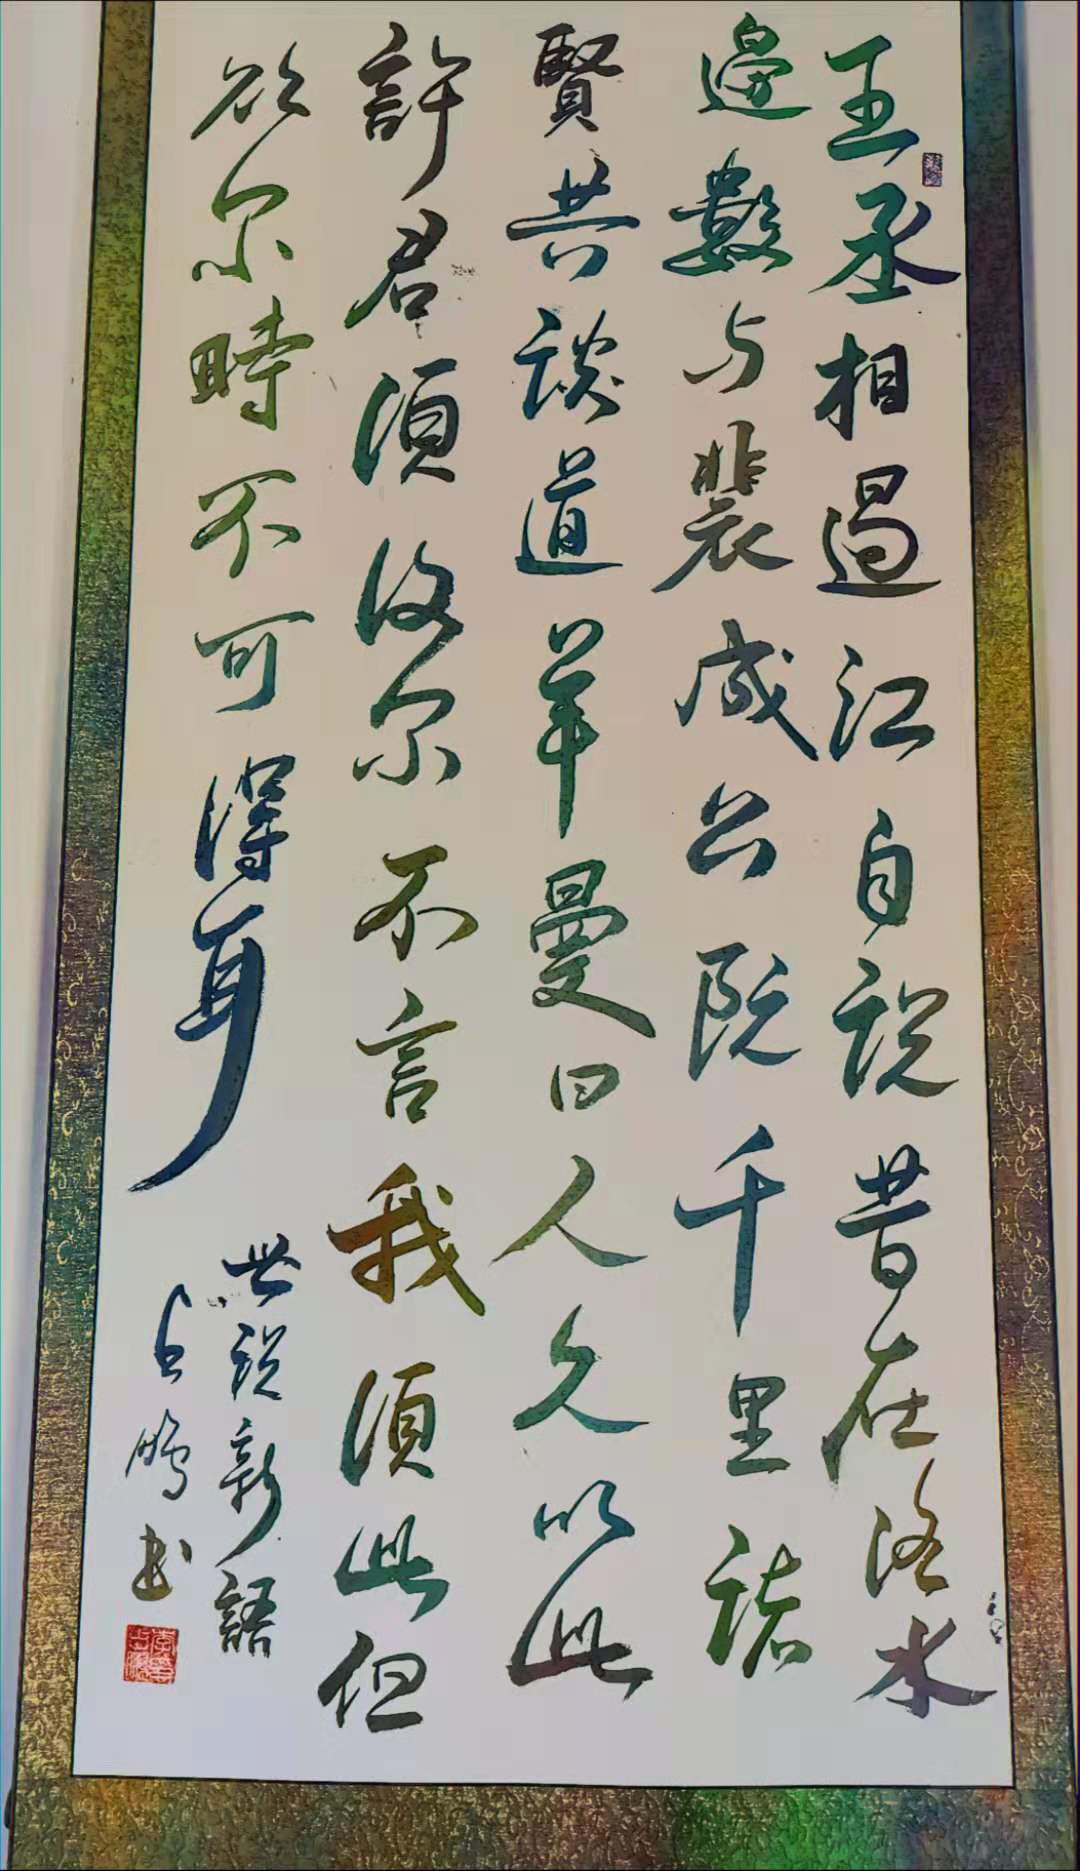 王丞相過江自説昔在洛水
邊數与裴成公阮千里諸
賢共談道羊曼曰人久以此
許君須復尔不言我須此但
欲尔時不可得耳
世説新語
占鵬书